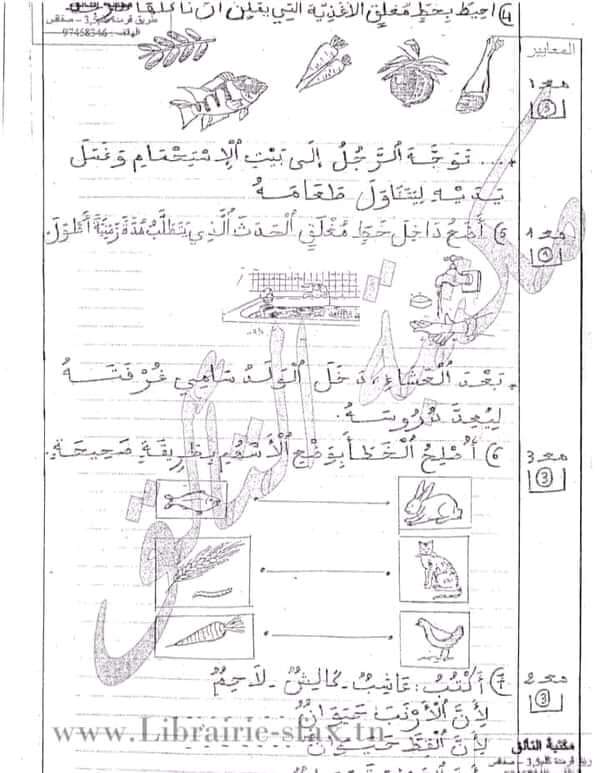 4) أحيط بخط مغلق الأغذية التي يمكن أن نأكلها
طريق قرمدة كلم 3,5 - صفاقس
الهاتف: 97458346
المعايير
مع1
3
.... تَوَجَّهَ الرَّجُلُ إِلَى بَيْتِ الْإِسْتِحْمَامِ وَغَسَلَ
يَدَيْهِ لِيَتَنَاوَلَ طَعَامَهُ
مع1
1
5) أَضَعُ دَاخِلَ خَطٍّ مُغْلَقٍ الْحَدَثَ الَّذِي يَتَطَلَّبُ مُدَّةً زَمَنِيَّةً أَطْوَلَ.
بَعْدَ الْعَشَاءِ، دَخَلَ الْوَلَدُ سَامِي غُرْفَتَهُ
لِيُعِدَّ دُرُوسَهُ.
مع3
3
6) أُصْلِحُ الْخَطَأَ بِوَضْعِ الْأَسْهُمِ بِطَرِيقَةٍ صَحِيحَةٍ.
مع2
3
7) أَكْتُبُ: عَاشِبٌ - كَالِشٌ - لَاحِمٌ
لِأَنَّ الْأَرْنَبَ حَيَوَانٌ
لِأَنَّ الْقِطَّ حَيَوَانٌ
www.Librairie-sfax.tn
مكتبة التألق